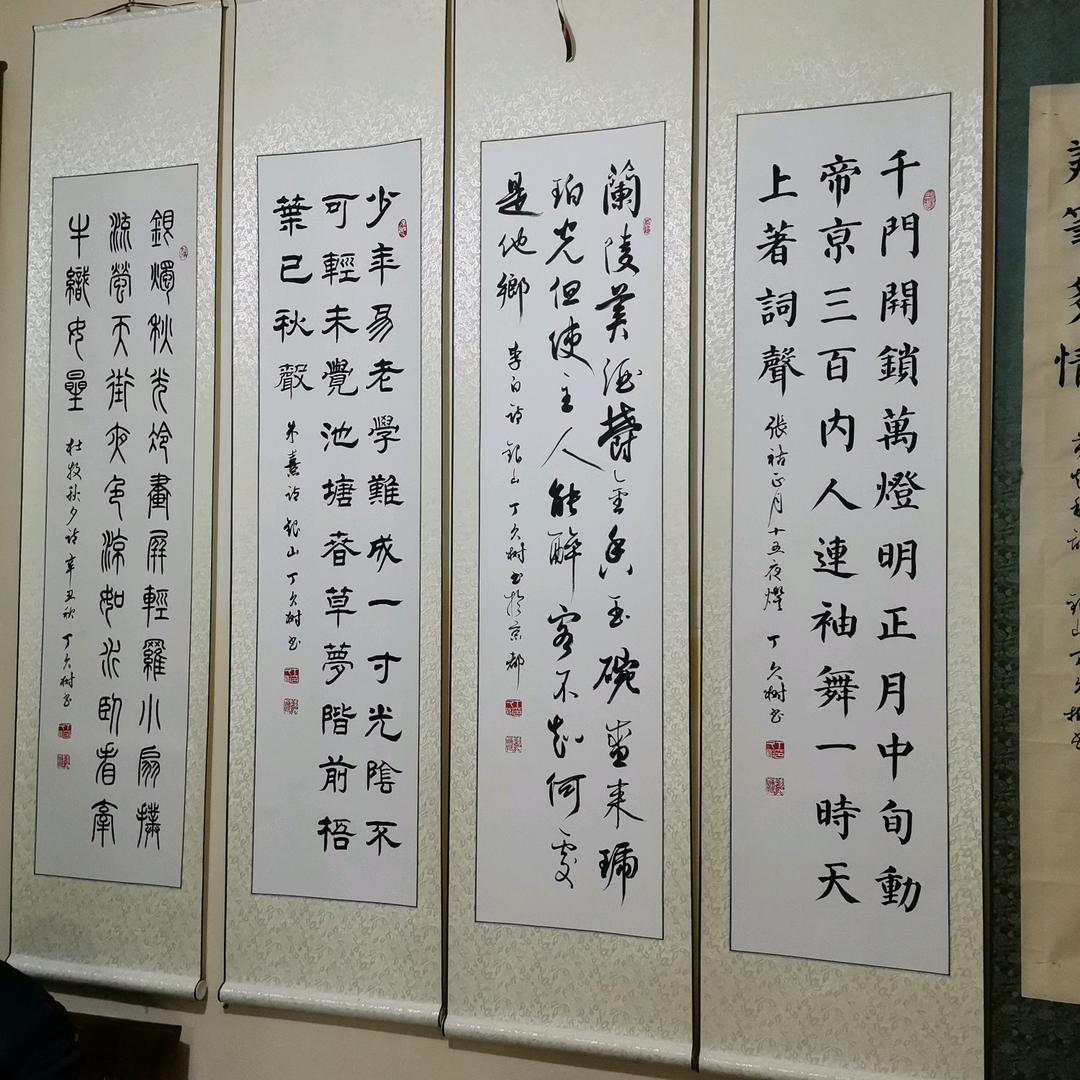 千門開鎖萬燈明正月中旬動
帝京三百内人連袖舞一時天
上著詞聲
張祜正月十五夜燈 丁久樹书
蘭陵美酒鬱金香玉碗盛来琥
珀光但使主人能醉客不知何處
是他鄉
李白诗 銀山丁久樹书於京都
少年易老學難成一寸光陰不
可輕未覺池塘春草夢階前梧
葉已秋聲
朱熹诗 銀山丁久樹书
銀燭秋光冷畫屏輕羅小扇撲
流螢天街夜色涼如水卧看牽
牛織女星
杜牧秋夕诗 辛丑秋 丁久樹书